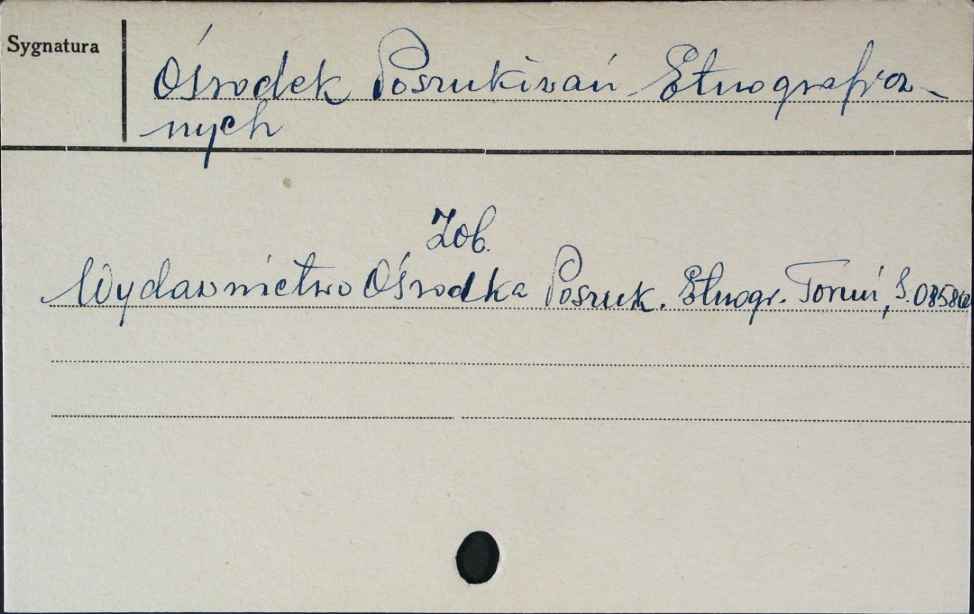 Sygnatura
Ośrodek Poszukiwań Etnograficz-
nych
Zob.
Wydawnictwo Ośrodka Poszuk. Etnogr. Toruń, S.